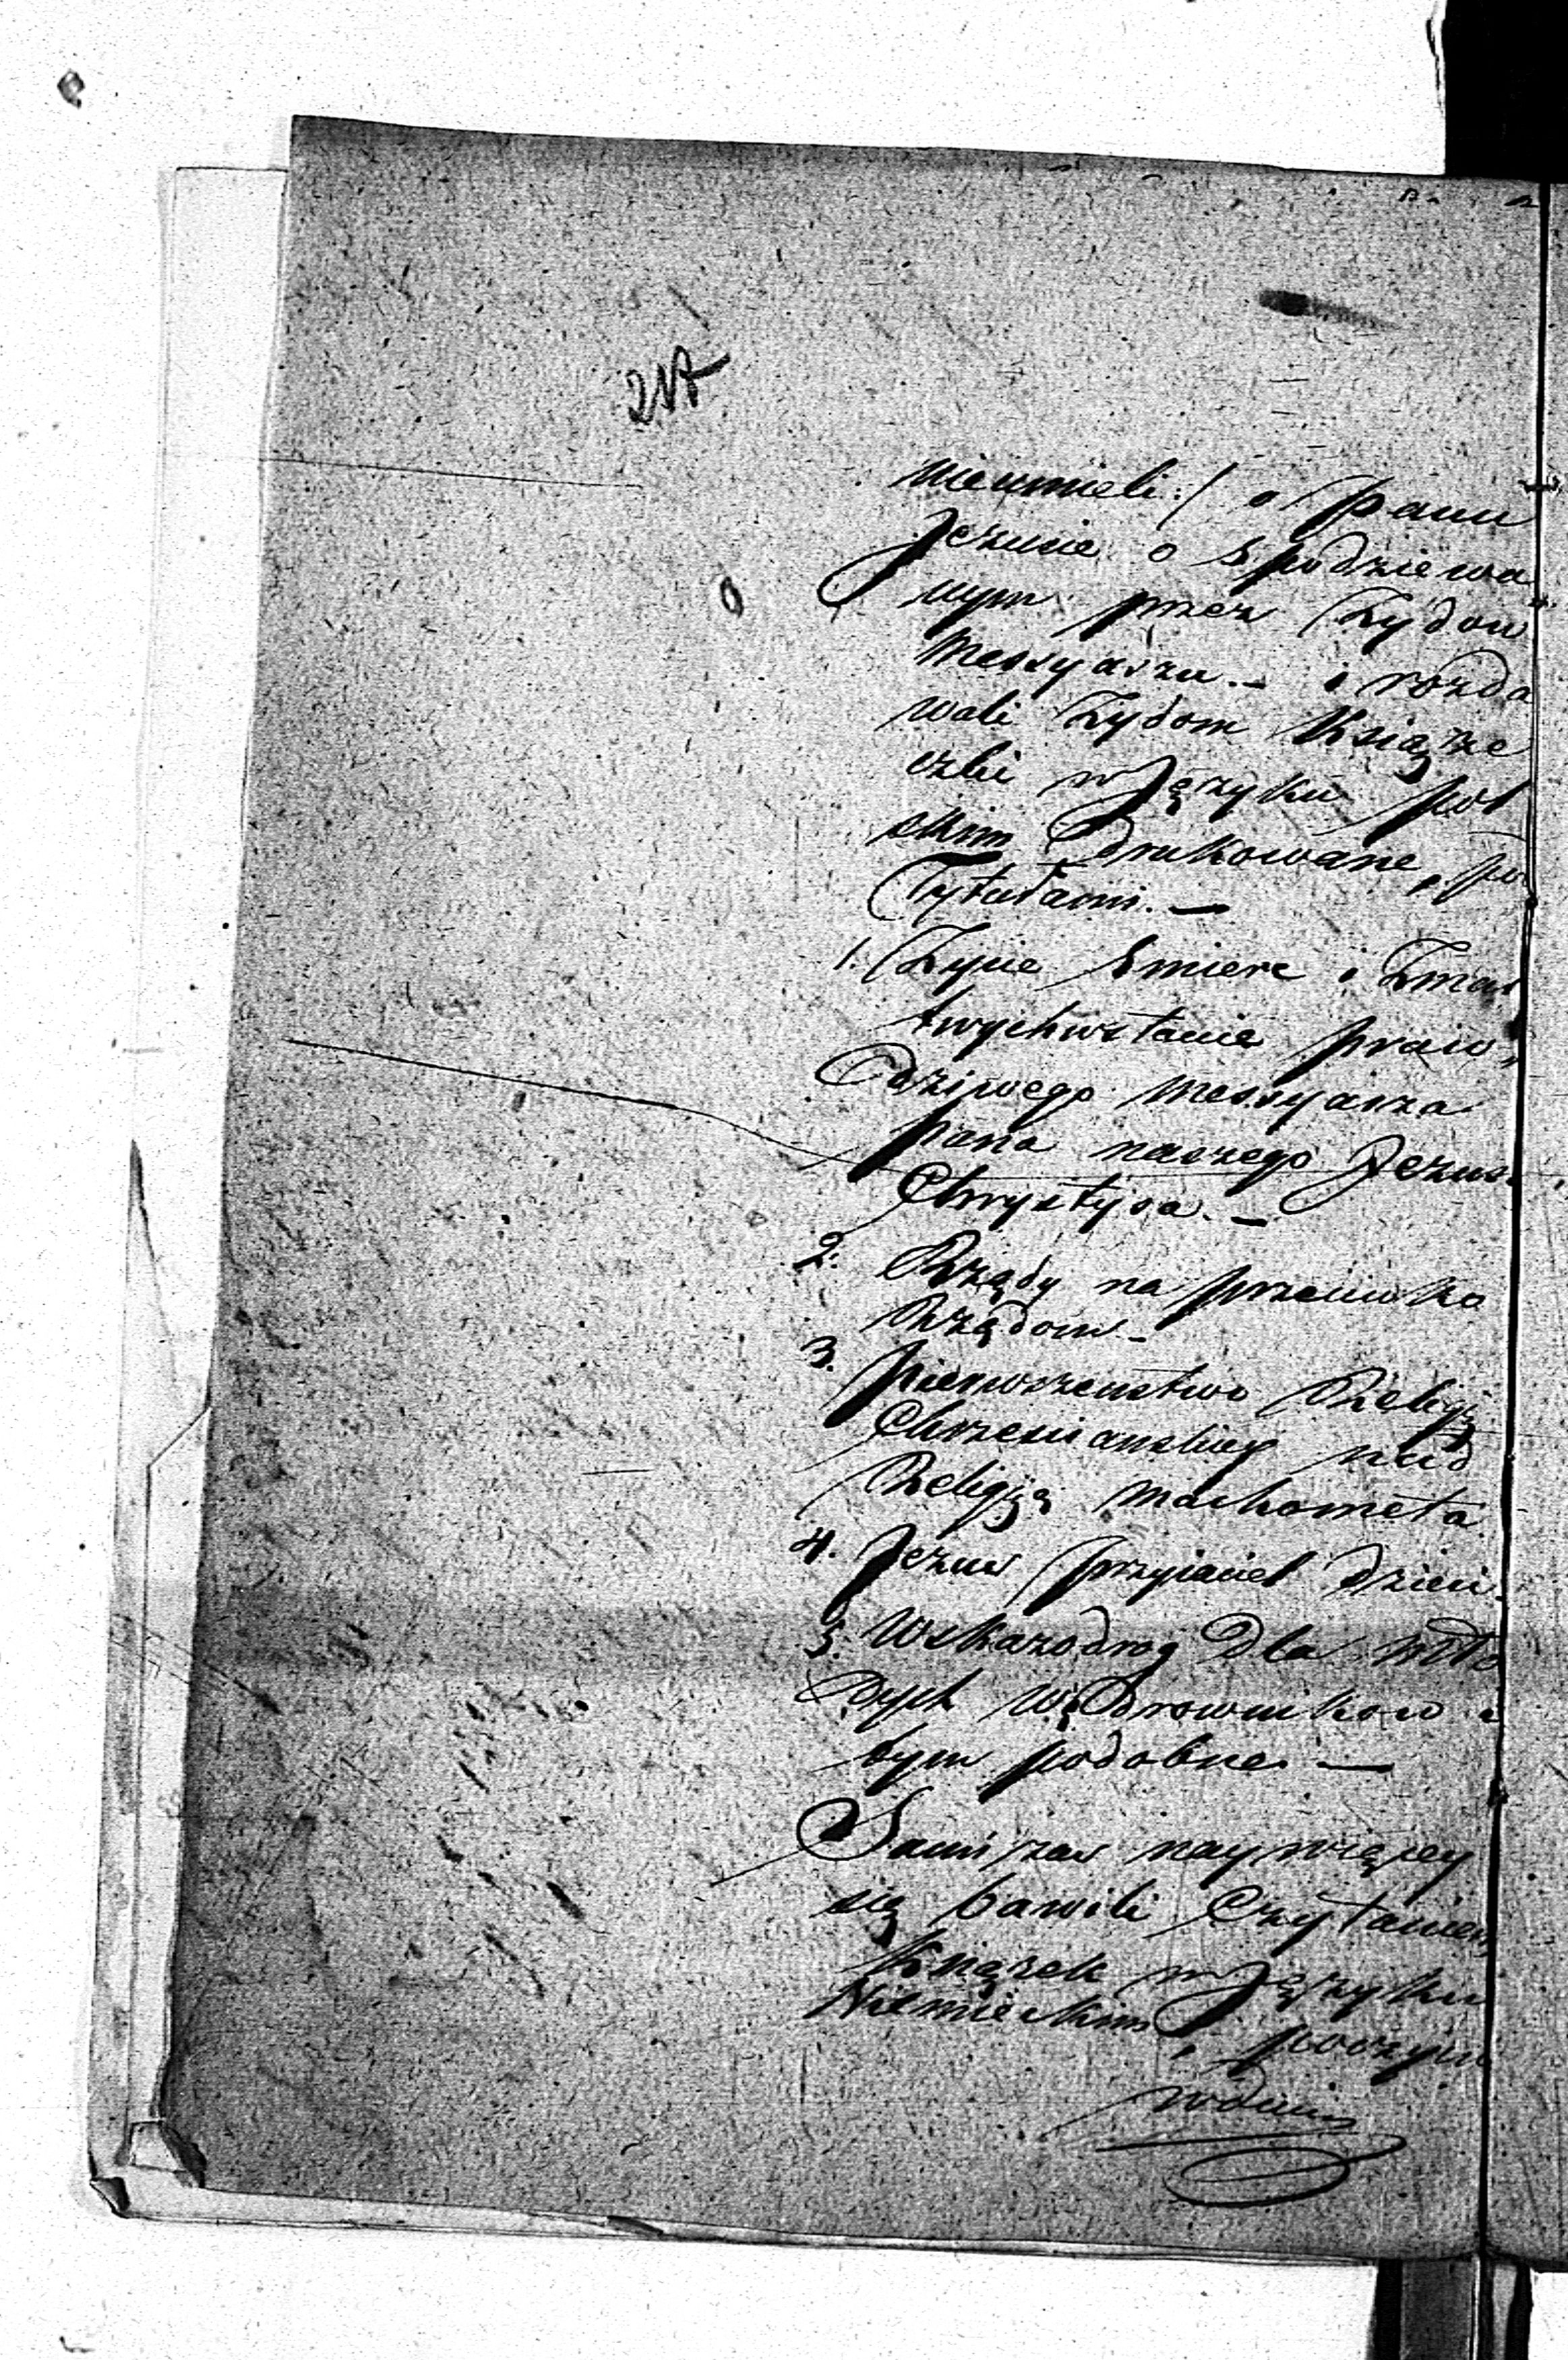 217
nieumieli:/ o Panu
Jezusie o spodziewa
nym przez Zydow
Messyaszu. – i rozda
wali Zydom Książe
czki w Języku pol
skim drukowane, po
Tytułami. —
1. Zycie Smierc i Zmar
twychwstanie praw„
dziwego Messyasza
Pana naszego Jezus
Chrystysa. –
2. Rządy na przeciwko
Rządom –
3. Pierwszenstwo Religij
Chrzescianskiey nad
Religiją Machometa.
4. Jezus przyiaciel dzieci.
5. Wskazodrog dla mło
dych wędrownikow i
tym podobne. —
Sami zas naywięcey
się bawili czytaniem
Książek w Języku
Niemieckim i poczyin